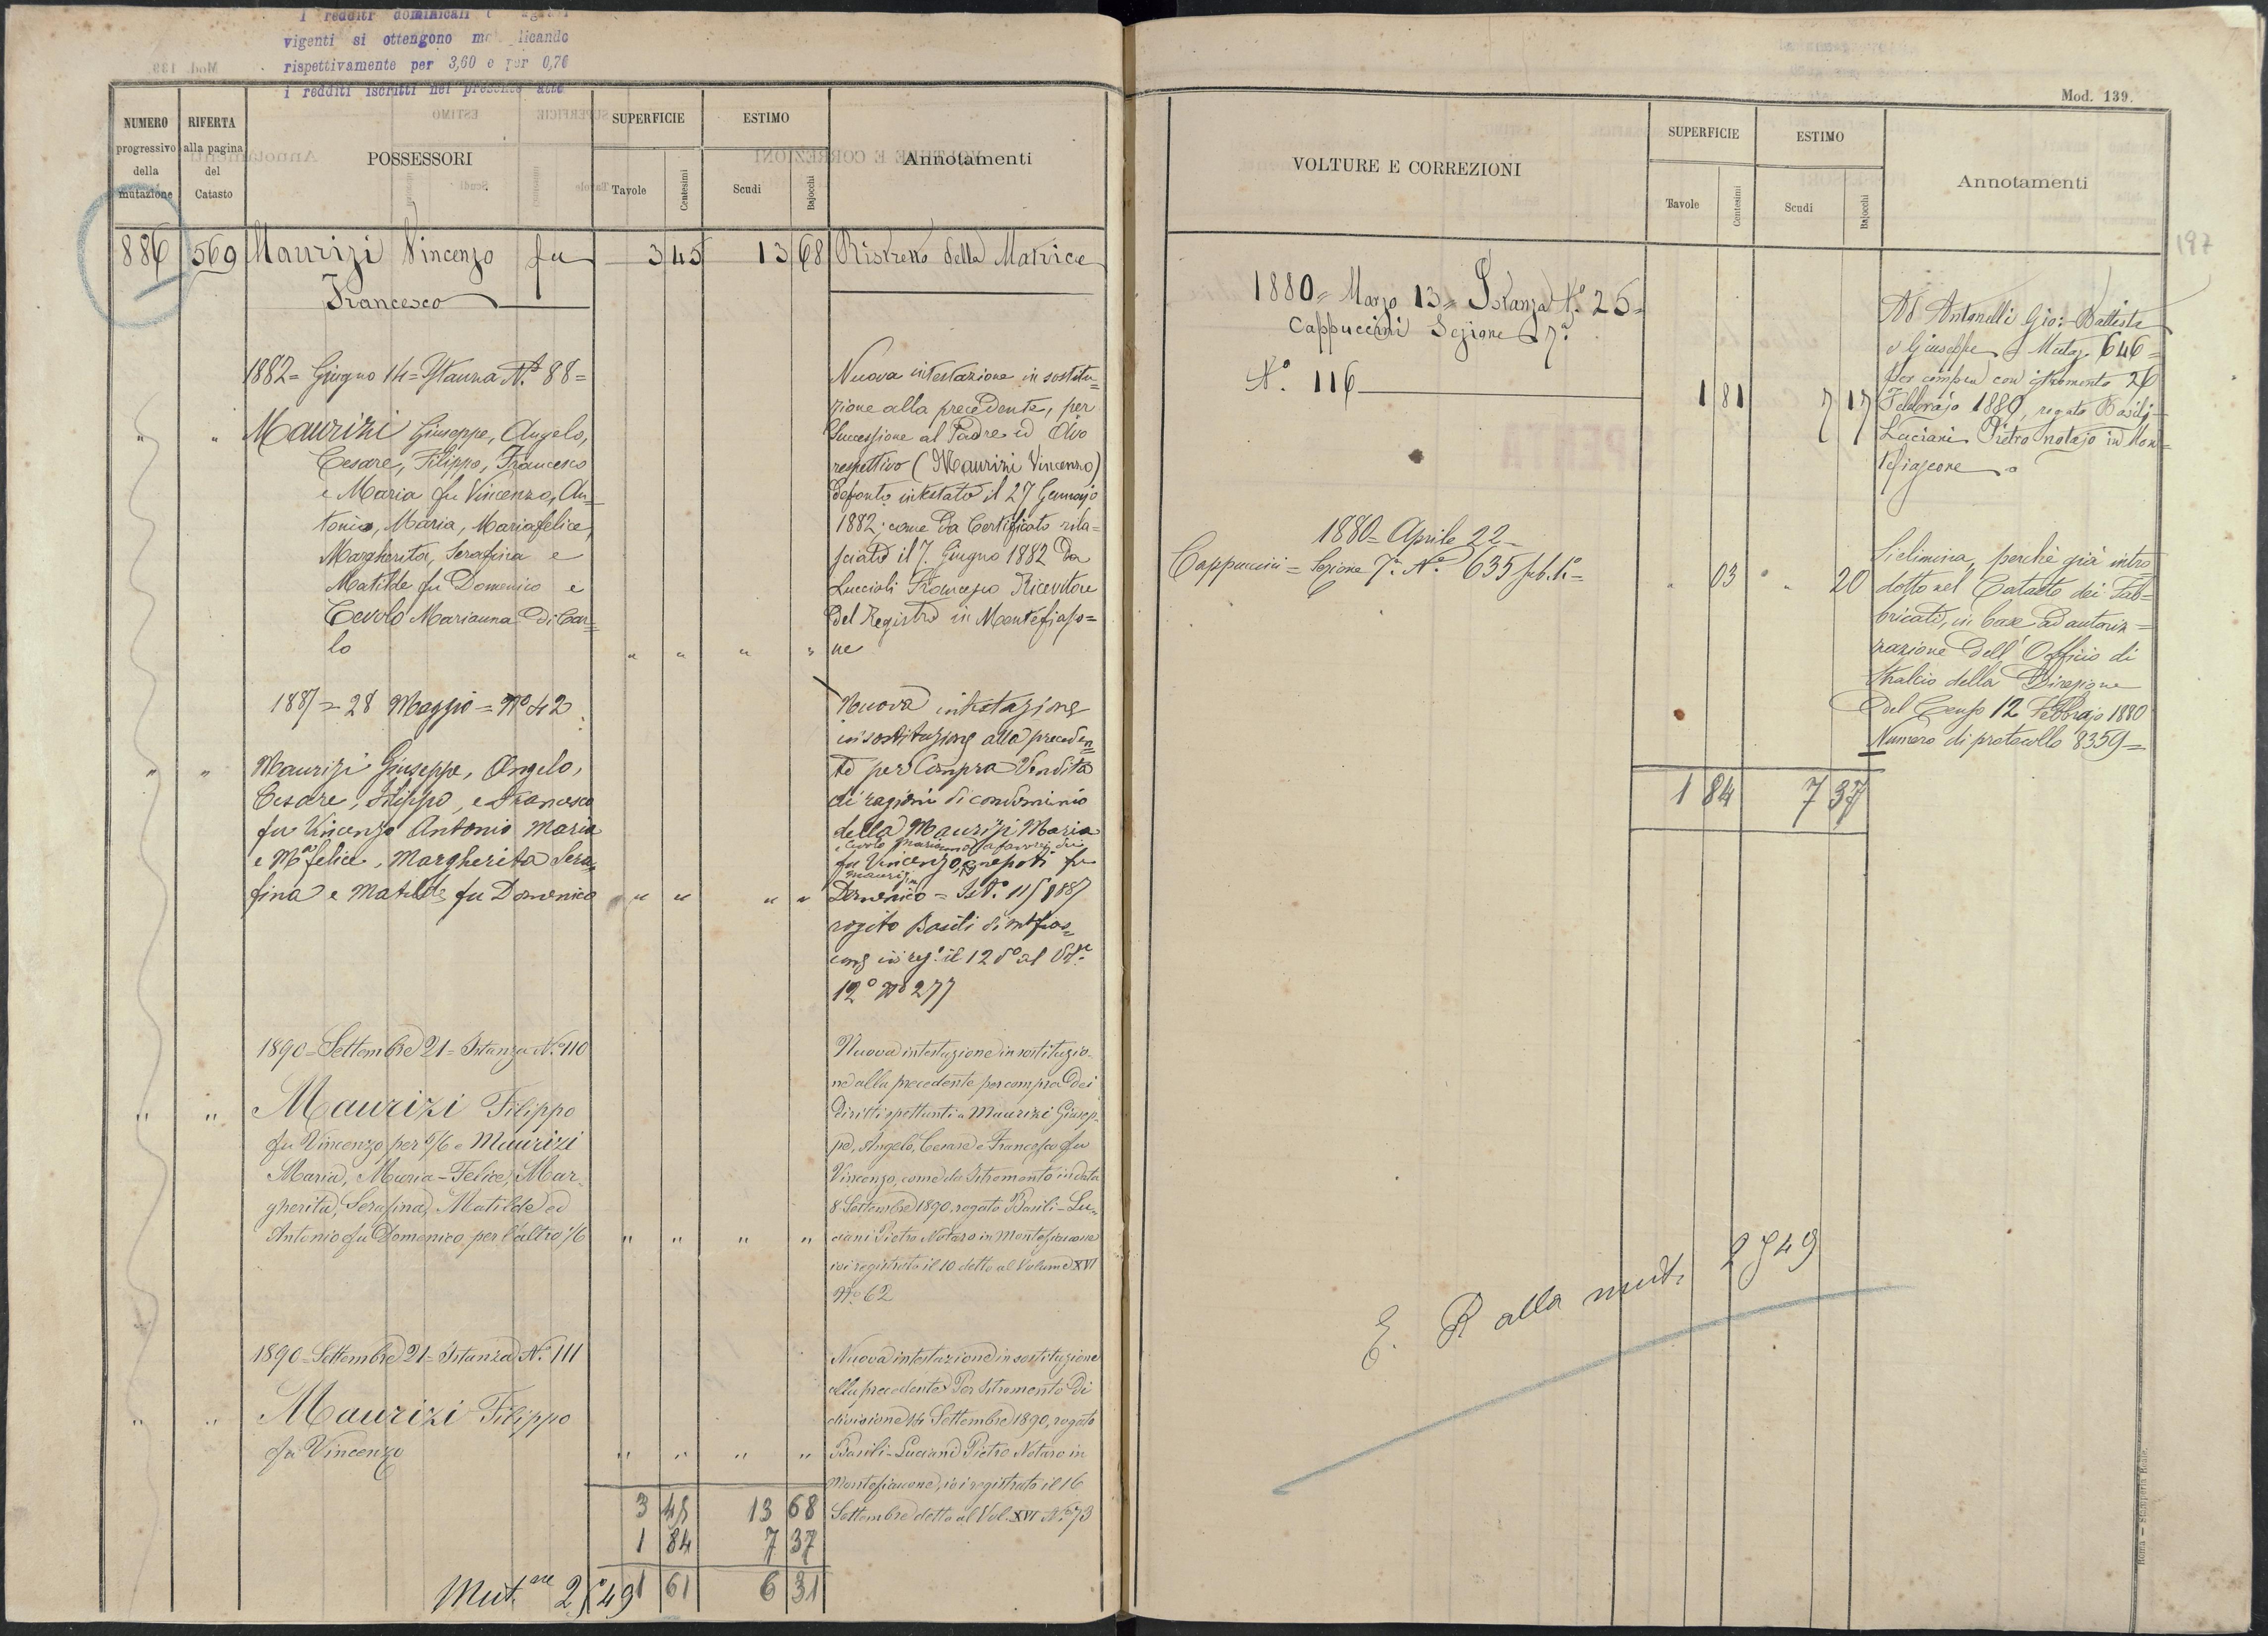 I redditi dominicali
vigenti si ottengono licando
rispettivamente per 3,60 e per 0,70
i redditi iscritti nel presente atto
NUMERO progressivo della mutazione
RIFERTA alla pagina del Catasto
POSSESSORI
SUPERFICIE
Tavole Centesimi
ESTIMO
Scudi Bajocchi
Annotamenti
886 569 Maurizi Vincenzo fu 3 45 13 68 Ristretto della Matrice
Francesco
1882 = Giugno 14 = Istanza N.º 88 =
" " Maurizi Giuseppe, Angelo,
Cesare, Filippo, Francesco
e Maria fu Vincenzo, An=
tonio, Maria, Mariafelice,
Margherita, Serafina e
Matilde fu Domenico e
Cevolo Marianna di Car=
lo " " " "
Nuova intestazione in sostitu=
zione alla precedente, per
successione al Padre ed Avo
respettivo (Maurizi Vincenzo)
defonto intestato il 27 Gennajo
1882, come da Certificato rila=
sciato il 7 Giugno 1882 da
Luccioli Francesco Ricevitore
del Registro in Montefiasco=
ne
1887 = 28 Maggio = Nº 42
" " Maurizi Giuseppe, Angelo,
Cesare, Filippo, e Francesco
fu Vincenzo Antonio Maria
e Mª felice, Margherita Sera=
fina e Matilde fu Domenico " " " "
Nuova intestazione
in sostituzione alla preceden=
te per Compra Vendita
di ragioni di condominio
della Maurizi Maria
e Cevolo Marianna a favore di
fu Vincenzo, nepoti fu
Maurizi
Domenico = 11 1887
rogito Basili di Mtefias=
cone il 12 dº al
12º Nº 277
1890 = Settembre 21 = Istanza Nº 110
" " Maurizi Filippo
fu Vincenzo per 5/6 e Maurizi
Maria, Maria-Felice, Mar=
gherita, Serafina, Matilde ed
Antonio fu Domenico per l'altro 1/6 " " " "
Nuova intestazione in sostituzio=
ne alla precedente per compra dei
diritti spettanti a Maurizi Giusep=
pe, Angelo, Cesare e Francesco fu
Vincenzo, come da Istromento in data
8 Settembre 1890, rogato Basili-Lu=
ciani Pietro Notaro in Montefiascone
ivi registrato il 10 detto al Volume XVI
Nº 62
1890 = Settembre 21 = Istanza Nº 111
" " Maurizi Filippo
fu Vincenzo " " " "
Nuova intestazione in sostituzione
alla precedente Per Istromento di
divisione 14 Settembre 1890, rogato
Basili-Luciani Pietro Notaro in
Montefiascone, ivi registrato il 16
Settembre detto al Vol. XVI Nº 73
3 45 13 68
1 84 7 37
1 61 6 31
Mut.ne 2749
Mod. 139.
VOLTURE E CORREZIONI
SUPERFICIE
Tavole Centesimi
ESTIMO
Scudi Bajocchi
Annotamenti
197
1880 = Marzo 13 = Istanza Nº 25 =
Cappuccini Sezione 7ª
Nº 116 1 81 7 17
Ad Antonelli Gio: Battista
e Giuseppe = Mutaz. 646 =
per compra con istromento 26
Febbrajo 1880, rogato Basilj-
Luciani Pietro notajo in Mon=
tefiascone
1880 = Aprile 22 =
Cappuccini = Sezione 7ª Nº 635 sub. 1º = " 03 " 20
Si elimina, perchè già intro=
dotto nel Catasto dei Fab=
bricati, in base ad autoriz=
zazione dell'Officio di
Stralcio della Direzione
del Censo 12 Febbrajo 1880
Numero di protocollo 8359 =
1 84 7 37
E. R alla mut. 2749
Roma — Stamperia Reale.